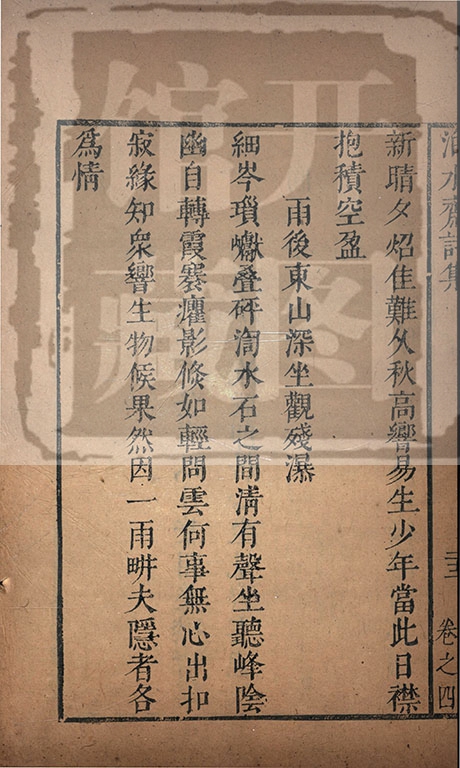 泊水齋詩集
卷之四
新晴夕炤佳難久秋高響易生少年當此日襟
抱積空盈
雨後東山深坐觀殘瀑
細岑瑣巘叠砰訇水石之間淸有聲坐聽峰陰
幽自轉霞褰癯影倐如輕問雲何事無心出扣
寂緣知衆響生物候果然因一雨畊夫隱者各
爲情